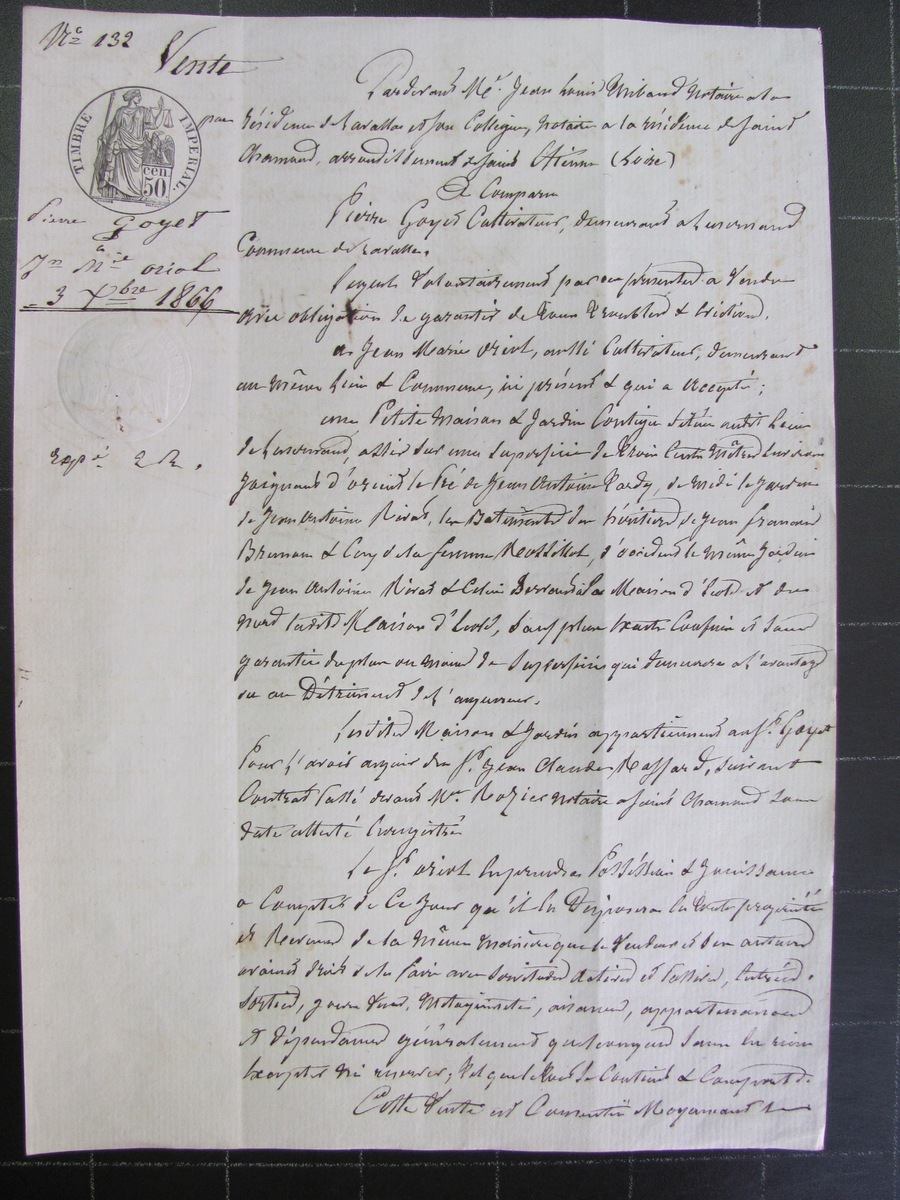 No 132
Vente
TIMBRE IMPERIAL
50 cen.
par
Pierre Goyet
a
Jn Mie oriol
3 Xbre 1866
Expé 2 R.
Pardevant Me. Jean Louis notaire a la
résidence de et son Collègue, notaire a la residence de saint
Chamond, arrondissement de saint Etienne (Loire)
A Comparu
Pierre Goyet Cultivateur, demeurant a
Commune de
Lequel Volontairement par ces présentes a Vendu
avec obligation de garantir de tous troubles & évictions,
a Jean Marie oriol, aussi Cultivateur, demeurant
au même Lieu & Commune, ici présent & qui a accepté;
une Petite Maison & Jardin Contigu situés audit Lieu
de assis sur une superficie de trois Cents Mètres environ
joignant d'orient le Pré de Jean Antoine de midi le Jardin
de Jean Antoine les Batiments des héritiers de Jean francois
& Cour de la femme d'occident le même Jardin
de Jean Antoine & la Maison d'Ecole et du
nord ladite Maison d'Ecole, sauf plus exacts Confins et sans
garantie du plus ou moins de superficie qui demeurera a l'avantage
ou au Détriment de l'acquereur.
Lesdits Maison & Jardin appartiennent au Sr. Goyet
Pour l'avoir acquis du Sr. Jean Claude Massard, suivant
Contrat Passé devant Me. Rozier notaire a saint Chamond sans
date enregistré
Le Sr. oriol en prendra Possession & Jouissance
a Compter de Ce Jour qu'il en Disposera en toute propriété
et Revenus de la Même manière que le Vendeur et ses auteurs
avaient droit de le faire avec servitudes actives et Passives, Entrées
sorties, jours Vues, Mitoyennetés, aisances, appartenances
et dépendances généralement quelconques sans en rien
Excepter ni reserver, tel que le tout se Contient & Comporte.
Cette Vente est Consentie Moyennant le